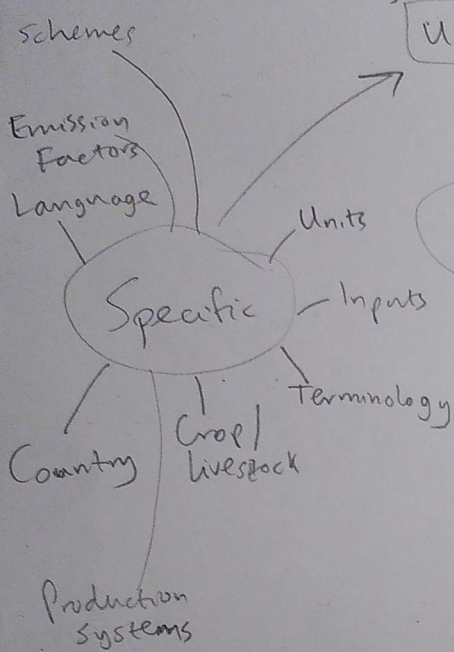 schemes
U
Emission
Factors
Language
Units
Specific
Inputs
Terminology
Crop/
livestock
Country
Production
systems